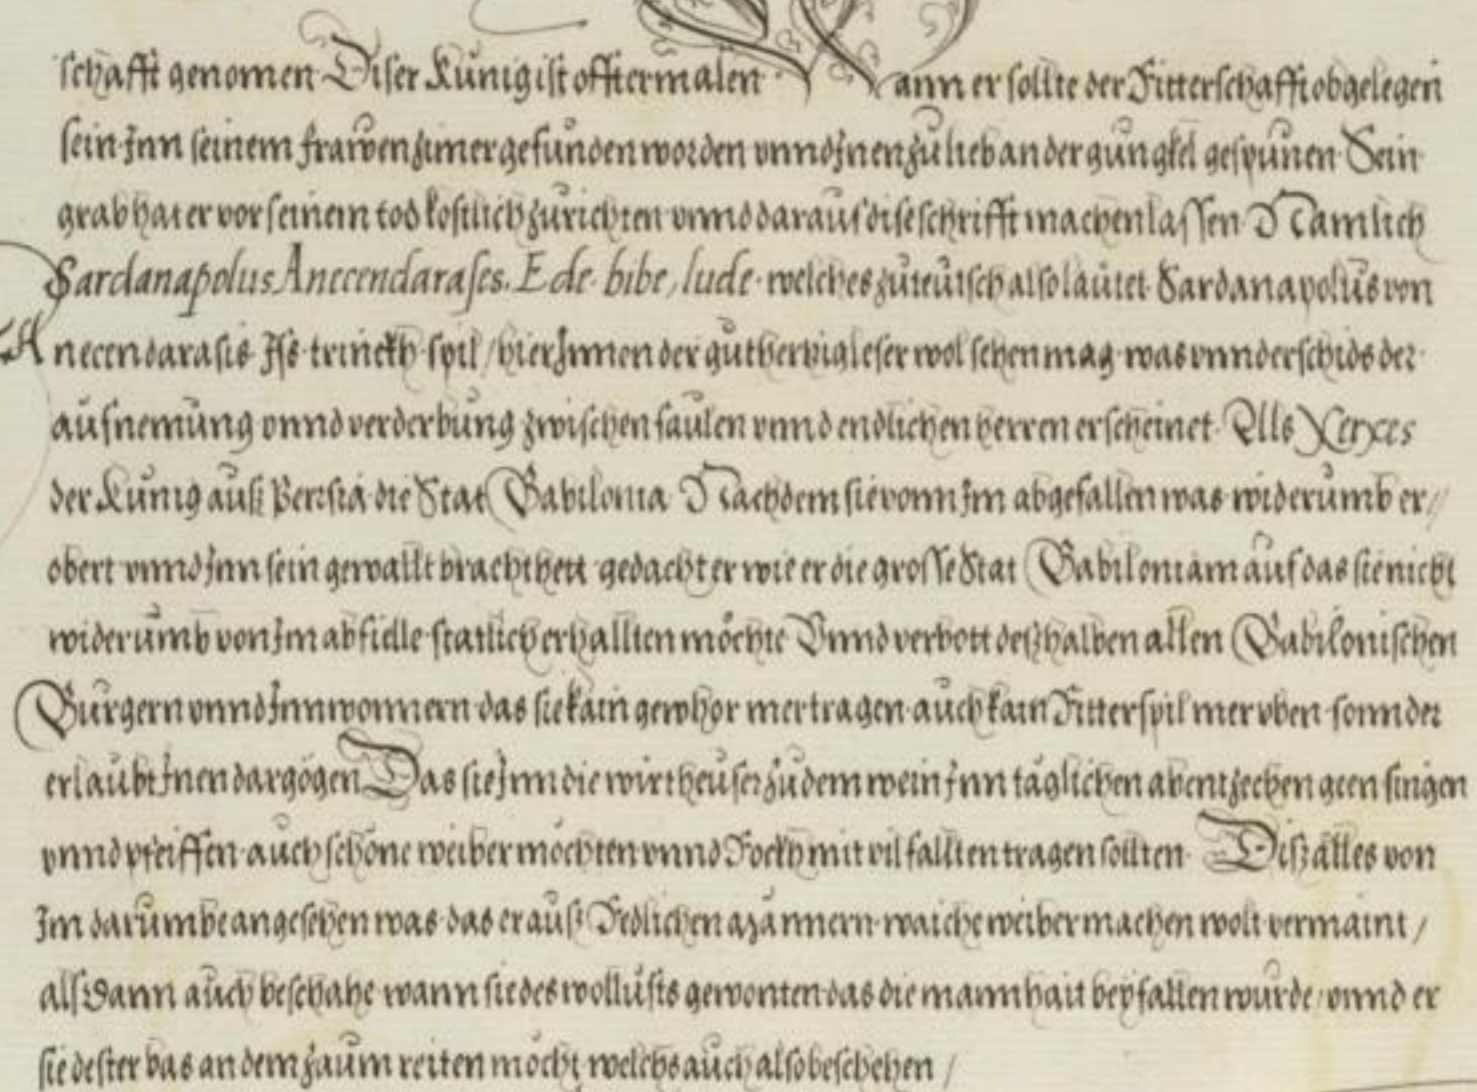 schafft genomen Diser Künig ist offtermalen wann er sollte der Ritterschafft obgelegen
sein Inn seinem frawenzimer gefunden worden vnnd Jnen zu lieb an der gungkel gespunen Sein
grab hat er vor seinem tod kostlich zürichten vnnd daraüf dise schrifft machen lassen Namlich
Sardanapolus Anecendarases. Ede bibe, lude welches züteütsch also laütet Sardanapolüs von
Anecendarasis Jss trinckh spil / hier Jnnen der güthertzig leser wol sehen mag was vnnderschids der
aüfnemüng vnnd verderbüng zwischen faülen vnnd endlichen herren erscheinet Alls Xerxes
der Künig auß Persia die Stat Babilonia Nachdem sie vonn Jm abgefallen was widerümb er//
obert vnnd Jnn sein gewallt bracht hett gedacht er wie er die grosse Stat Babiloniam aüf das sie nicht
widerümb von Jm abfielle statlich erhallten möchte Vnnd verbott deßhalben allen Babilonischen
Bürgern vnnd Jnnwonnern das sie kain gewhor mer tragen auch kain Ritterspil mer vben sonnder
erlaübt Jnen dargögen Das sie Jnn die wirtheüser zü dem wein Jnn täglichen abentzechen geen singen
vnnd pfeiffen auch schöne weiber möchten vnnd Rockh mit vil fallten tragen sollten Diß alles von
Jm darümbe angesehen was das er auß Redlichen mannern waiche weiber machen wolt vermaint /
alsdann aüch beschahe wann sie des wollüsts gewonten das die mannhait bey fallen würde vnnd er
sie dester bas an dem zaüm reiten möcht welchs auch also beschehen /